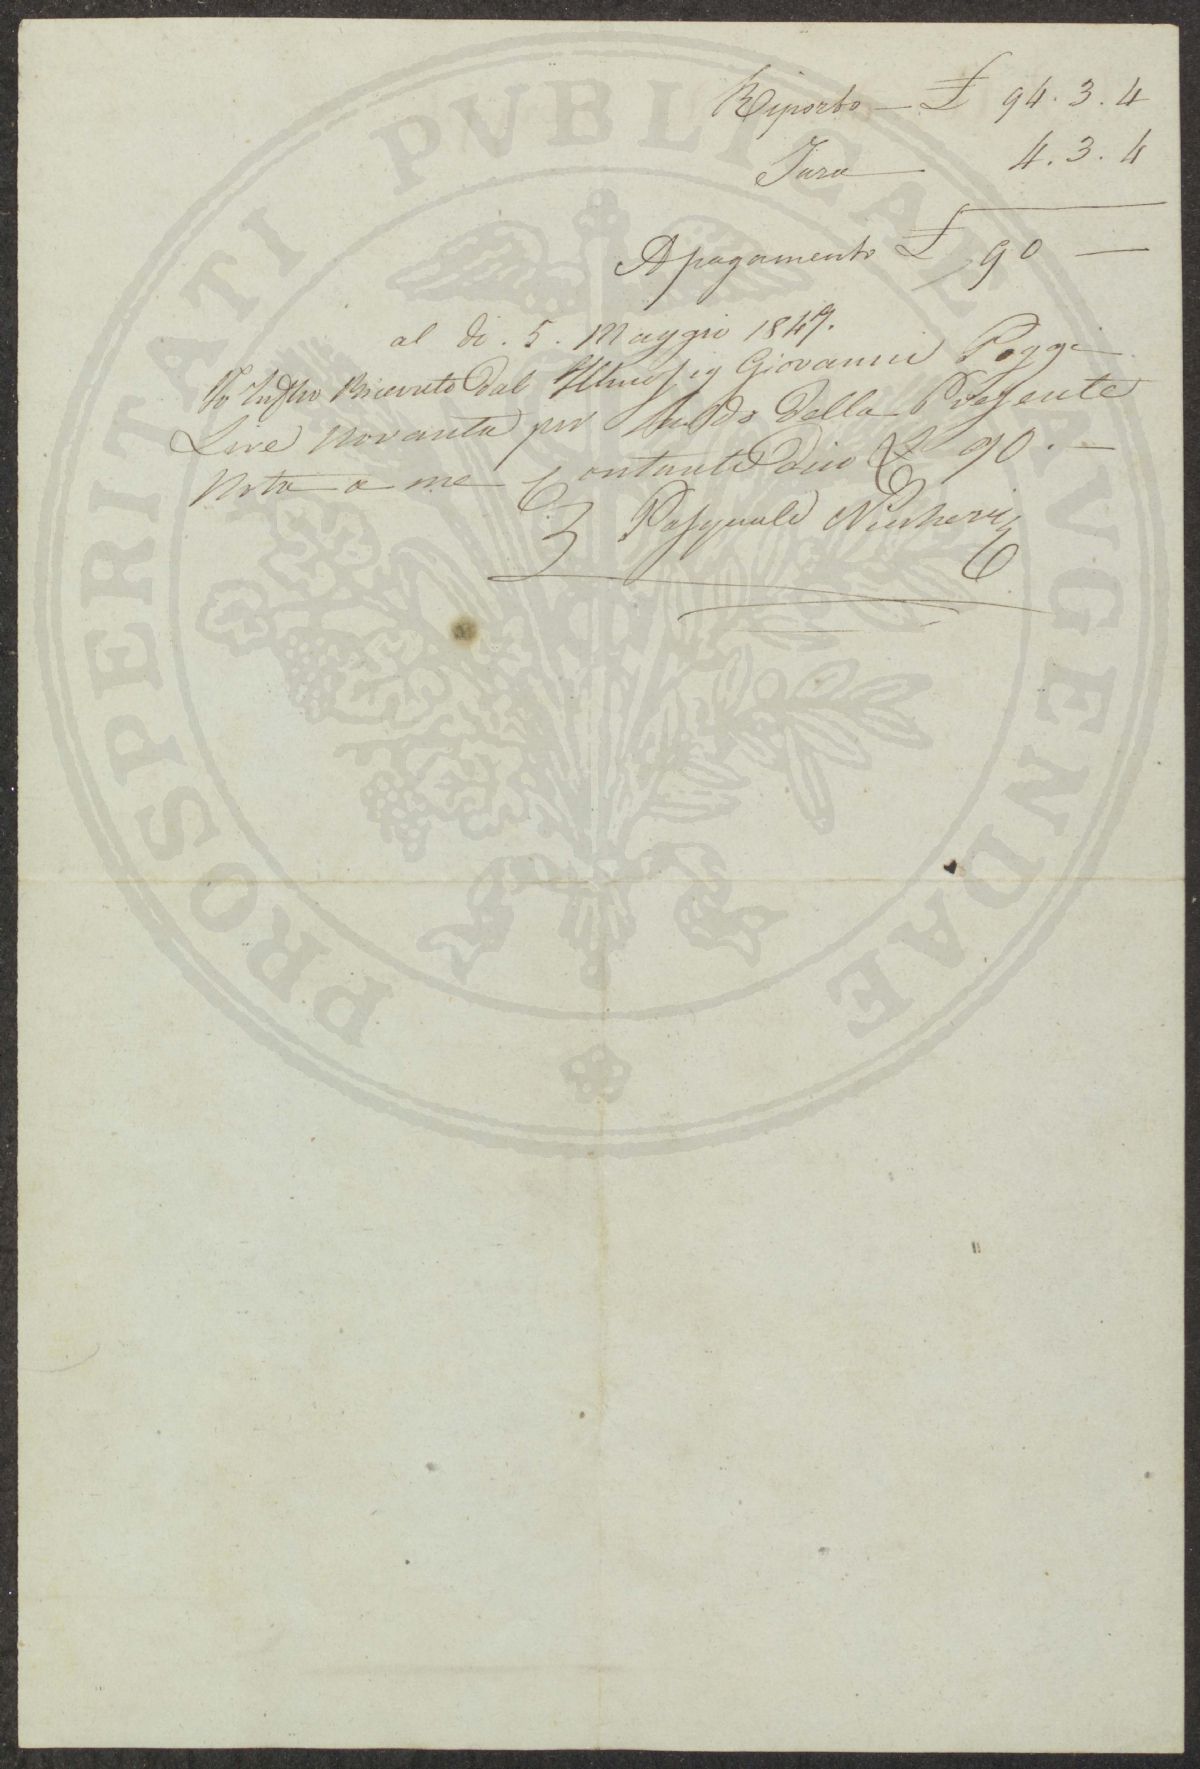 Riporto — £ 94. 3. 4
Tara — 4. 3. 4
Apagamento £ 90 —
al di. 5. Maggio 1847.
Io Ricevuto dal Illmo Sig Giovanni Poggi
Lire Novanta per Saldo della Presente
Nota a me Contanti dico £ 90. —
Pasquale
PROSPERITATI PVBLICAE AVGENDAE